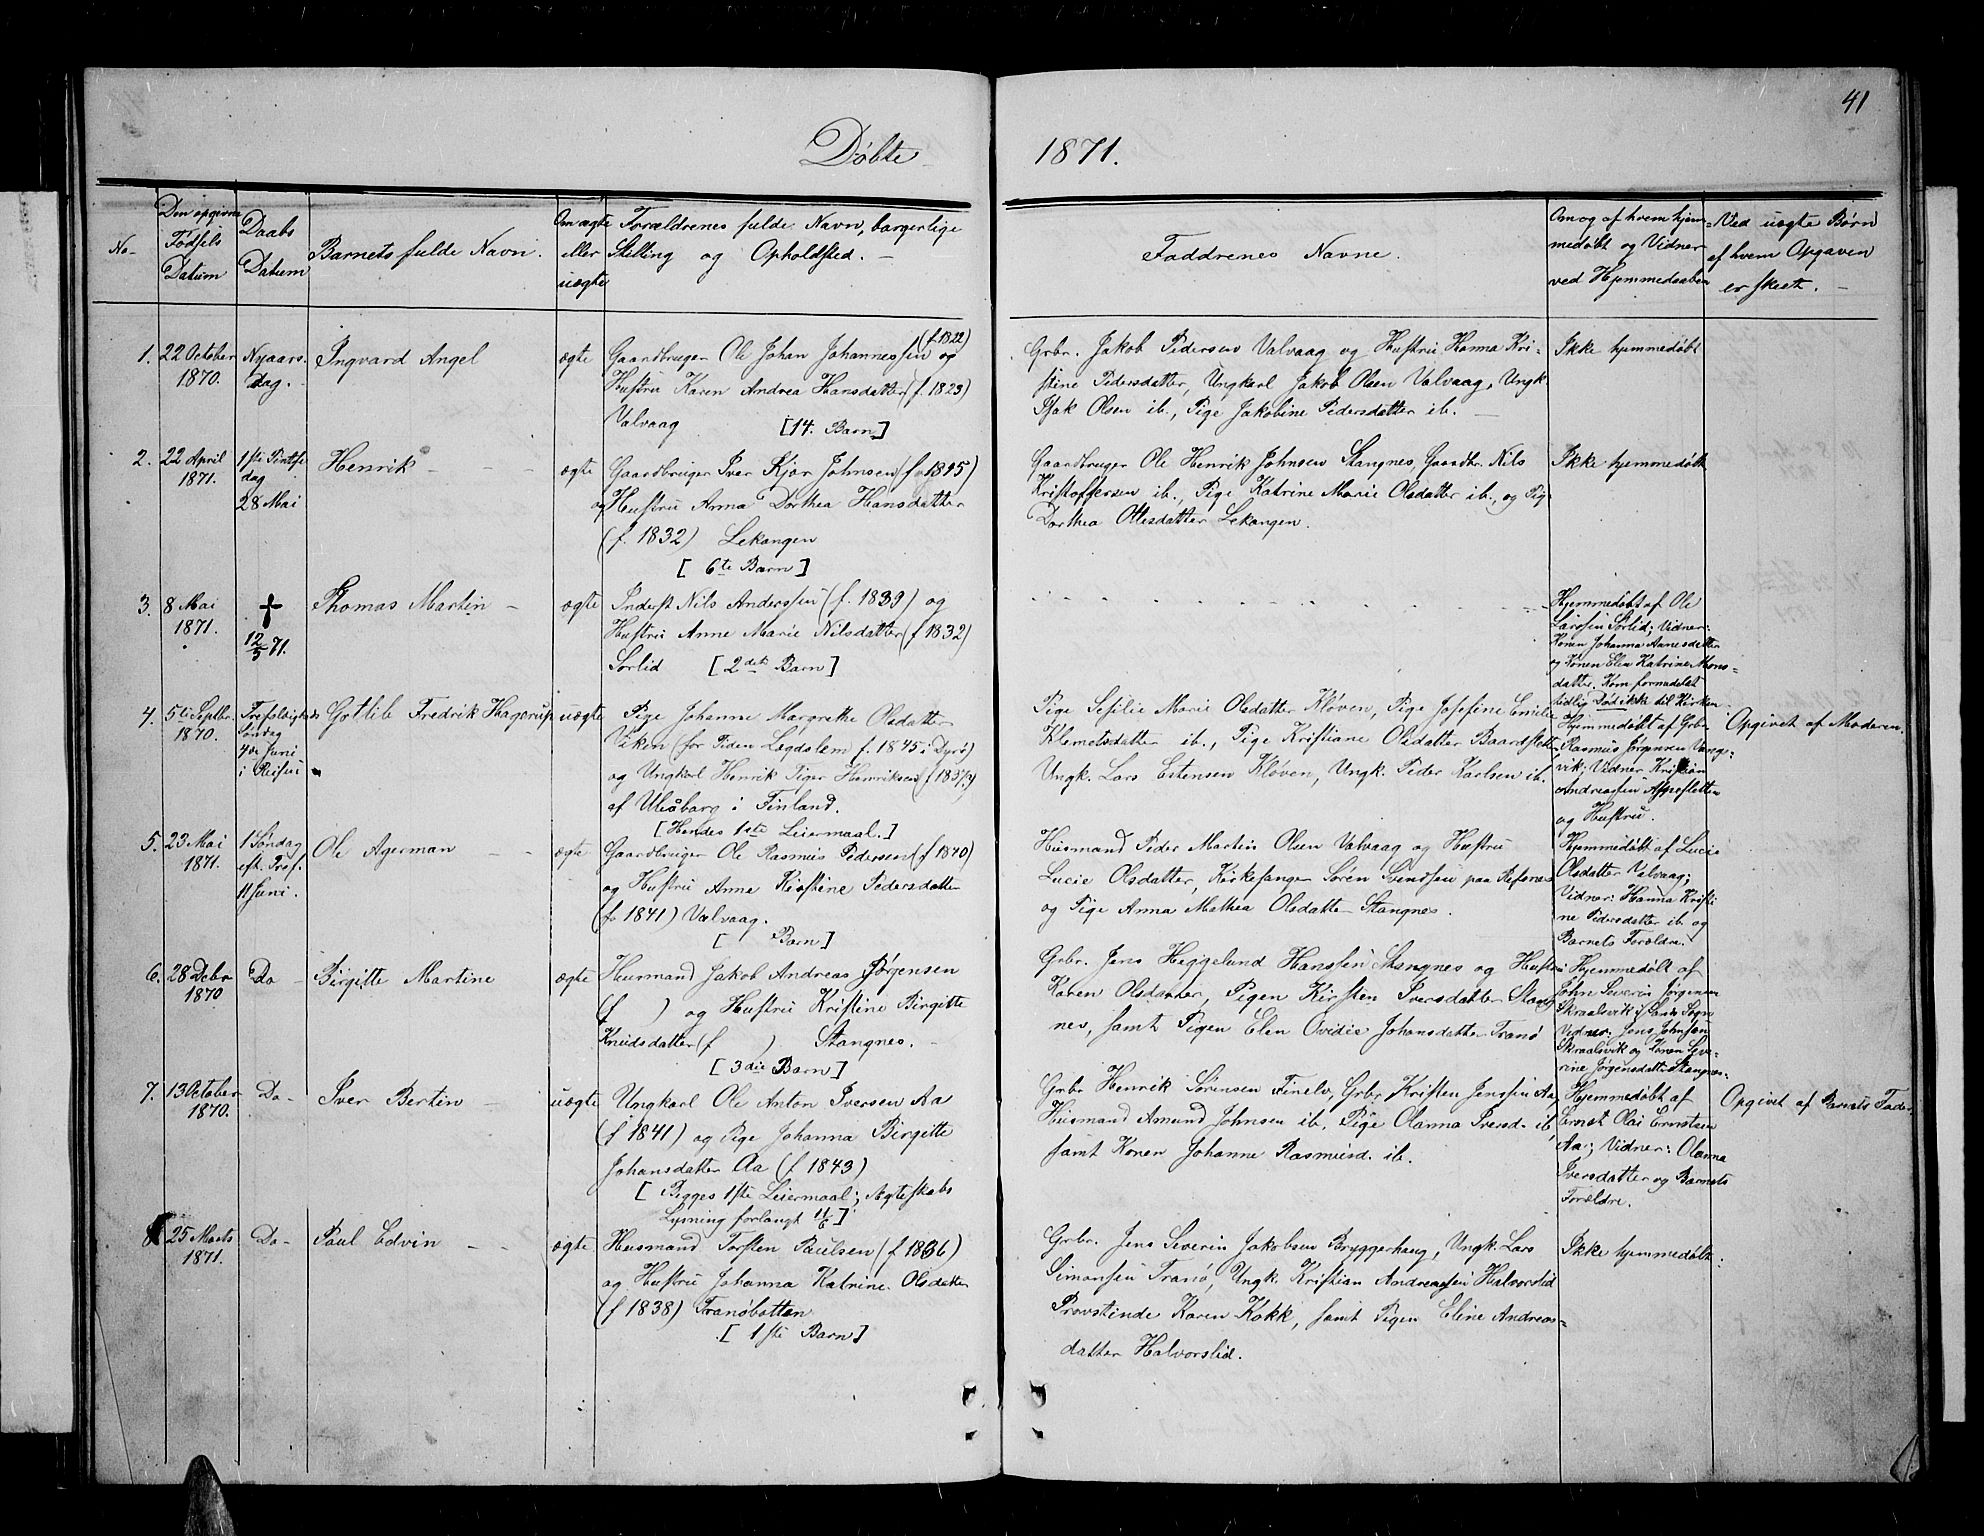 41
Døbte
1871.
No
Den opgivne Fødsels Datum
Daabs Datum
Barnets fulde Navn.
Om ægte eller uægte
Forældrenes fulde Navn, borgerlige Stilling og Opholdsted.
Faddrenes Navne.
Om og af hvem hjemmedøbt og Vidner ved Hjemmedaaben
Ved uægte Børn af hvem Opgaven er skeet.
1. 22 October 1870.
Nyaarsdag.
Ingvard Angel
ægte
Gaardbruger Ole Johan Johannessen (f. 1822) og
Hustru Karen Andrea Hansdatter (f. 1823)
Valvaag [14. Barn]
Grbr. Jakob Pedersen Valvaag og Hustru Hanna Kri-
stine Pedersdatter, Ungkarl Jakob Olsen Valvaag, Ungk.
Isak Olsen ib., Pige Jakobine Pedersdatter ib.
Ikke hjemmedøbt
2. 22 April 1871.
1ste Pintsedag 28 Mai
Henrik
ægte
Gaardbruger Iver Kjær Johnsen (f. 1835)
og Hustru Anna Dorthea Hansdatter
(f. 1832) Lekangen
[6te Barn]
Gaardbruger Ole Henrik Johnsen Stangnes, Gaardbr. Nils
Kristoffersen ib., Pige Katrine Marie Olsdatter ib., og Pig
Dorthea Olesdatter Lekangen.
Ikke hjemmedøbt
3. 8 Mai 1871.
† 12/5 71.
Thomas Martin
ægte
Inderst Nils Anderssen (f. 1839) og
Hustru Anne Marie Nilsdatter (f 1832)
Sørlid [2det Barn]
Hjemmedøbt af Ole
Larssen Sørlid; Vidner:
Konen Johanna Aanesdatter
og Konen Elen Katrine Mons-
datter. Kom formedelst
tidlig Død ikke til Kirken
4. 5te Septbr. 1870.
Trefoldigheds Søndag 4de Juni i Reisen
Gotlib Fredrik Hagerup
uægte
Pige Johanne Margrethe Olsdatter
Viken (for Tiden Lægdslem f. 1845 i Dyrø)
og Ungkarl Henrik Piger Henriksen (f 1837?)
af Uleåborg i Finland.
[Hendes 1ste Leiermaal.]
Pige Sesilie Marie Olsdatter Kløven, Pige Josefine Emilie
Klemetsdatter ib., Pige Kristiane Olsdatter Baardsletten
Ungk. Lars Estensen Kløven, Ungk. Peder Karlsen ib.
Hjemmedøbt af Grbr
Rasmus Jørgensen Vangs-
vik; Vidner Kristian
Andreassen Aspesletten
og Hustru.
Opgivet af Moderen.
5. 23 Mai 1871.
1 Søndag eft. Tref. 11 Juni.
Ole Agerman
ægte
Gaardbruger Ole Rasmus Pedersen (f 1840)
og Hustru Anne Kirstine Pedersdatter
(f. 1841) Valvaag.
[ Barn]
Husmand Peder Martin Olsen Valvaag og Hustru
Lucie Olsdatter, Kirkesanger Søren Svendsen paa Refsnes
og Pige Anna Mathea Olsdatter Stangnes.
Hjemmedøbt af Lucie
Olsdatter Valvaag;
Vidner: Hanna Kristi
ne Pedersdatter ib. og
Barnets Forældre.
6. 28 Debr 1870
Do
Birgitte Martine
ægte
Husmand Jakob Andreas Jørgensen
(f ) og Hustru Kristine Birgitte
Knudsdatter (f ) Stangnes.
[3die Barn]
Grbr. Jens Heggelund Hanssen Stangnes og Hustru
Karen Olsdatter, Pigen Kirsten Iversdatter Stang
nes, samt Pigen Elen Ovidie Johansdatter Tranø
Hjemmedøbt af
John Severin Jørgensen
Skraalsvik i Lands Sogn
Vidner: Jens Johnsen
Skraalsvik og Konen Seve-
rine Jørgensdatter Stangnes.
7. 13 October 1870.
Do
Iver Bertin
uægte
Ungkarl Ole Anton Iversen Aa
(f 1841) og Pige Johanna Birgitte
Johansdatter Aa (f. 1843)
[Begges 1ste Leiermaal; Ægteskabs
Lysning forlangt 11/6]
Grbr Henrik Sørensen Finelv, Grbr Kristen Jenssen Aa,
Husmand Amund Johnsen ib. Pige Olanna Iversd. ib
samt Konen Johanne Rasmusd. ib.
Hjemmedøbt af
Ernst Olai Ernstsen
Aa; Vidner: Olanna
Iversdatter og Barnets
Forældre.
Opgivet af Barnets Fader
8 25 Marts 1871.
Do
Paul Edvin
ægte
Husmand Torsten Paulsen (f 1836)
og Hustru Johanna Katrine Olsdatter
(f 1838) Tranøbotten
[1ste Barn]
Grbr. Jens Severin Jakobsen Bryggerhaug, Ungk. Lars
Simonsen Tranø, Ungk. Kristian Andreassen Halvorslid
Provstinde Karen Kokk, samt Pigen Eline Andreas-
datter Halvorslid.
Ikke hjemmedøbt.